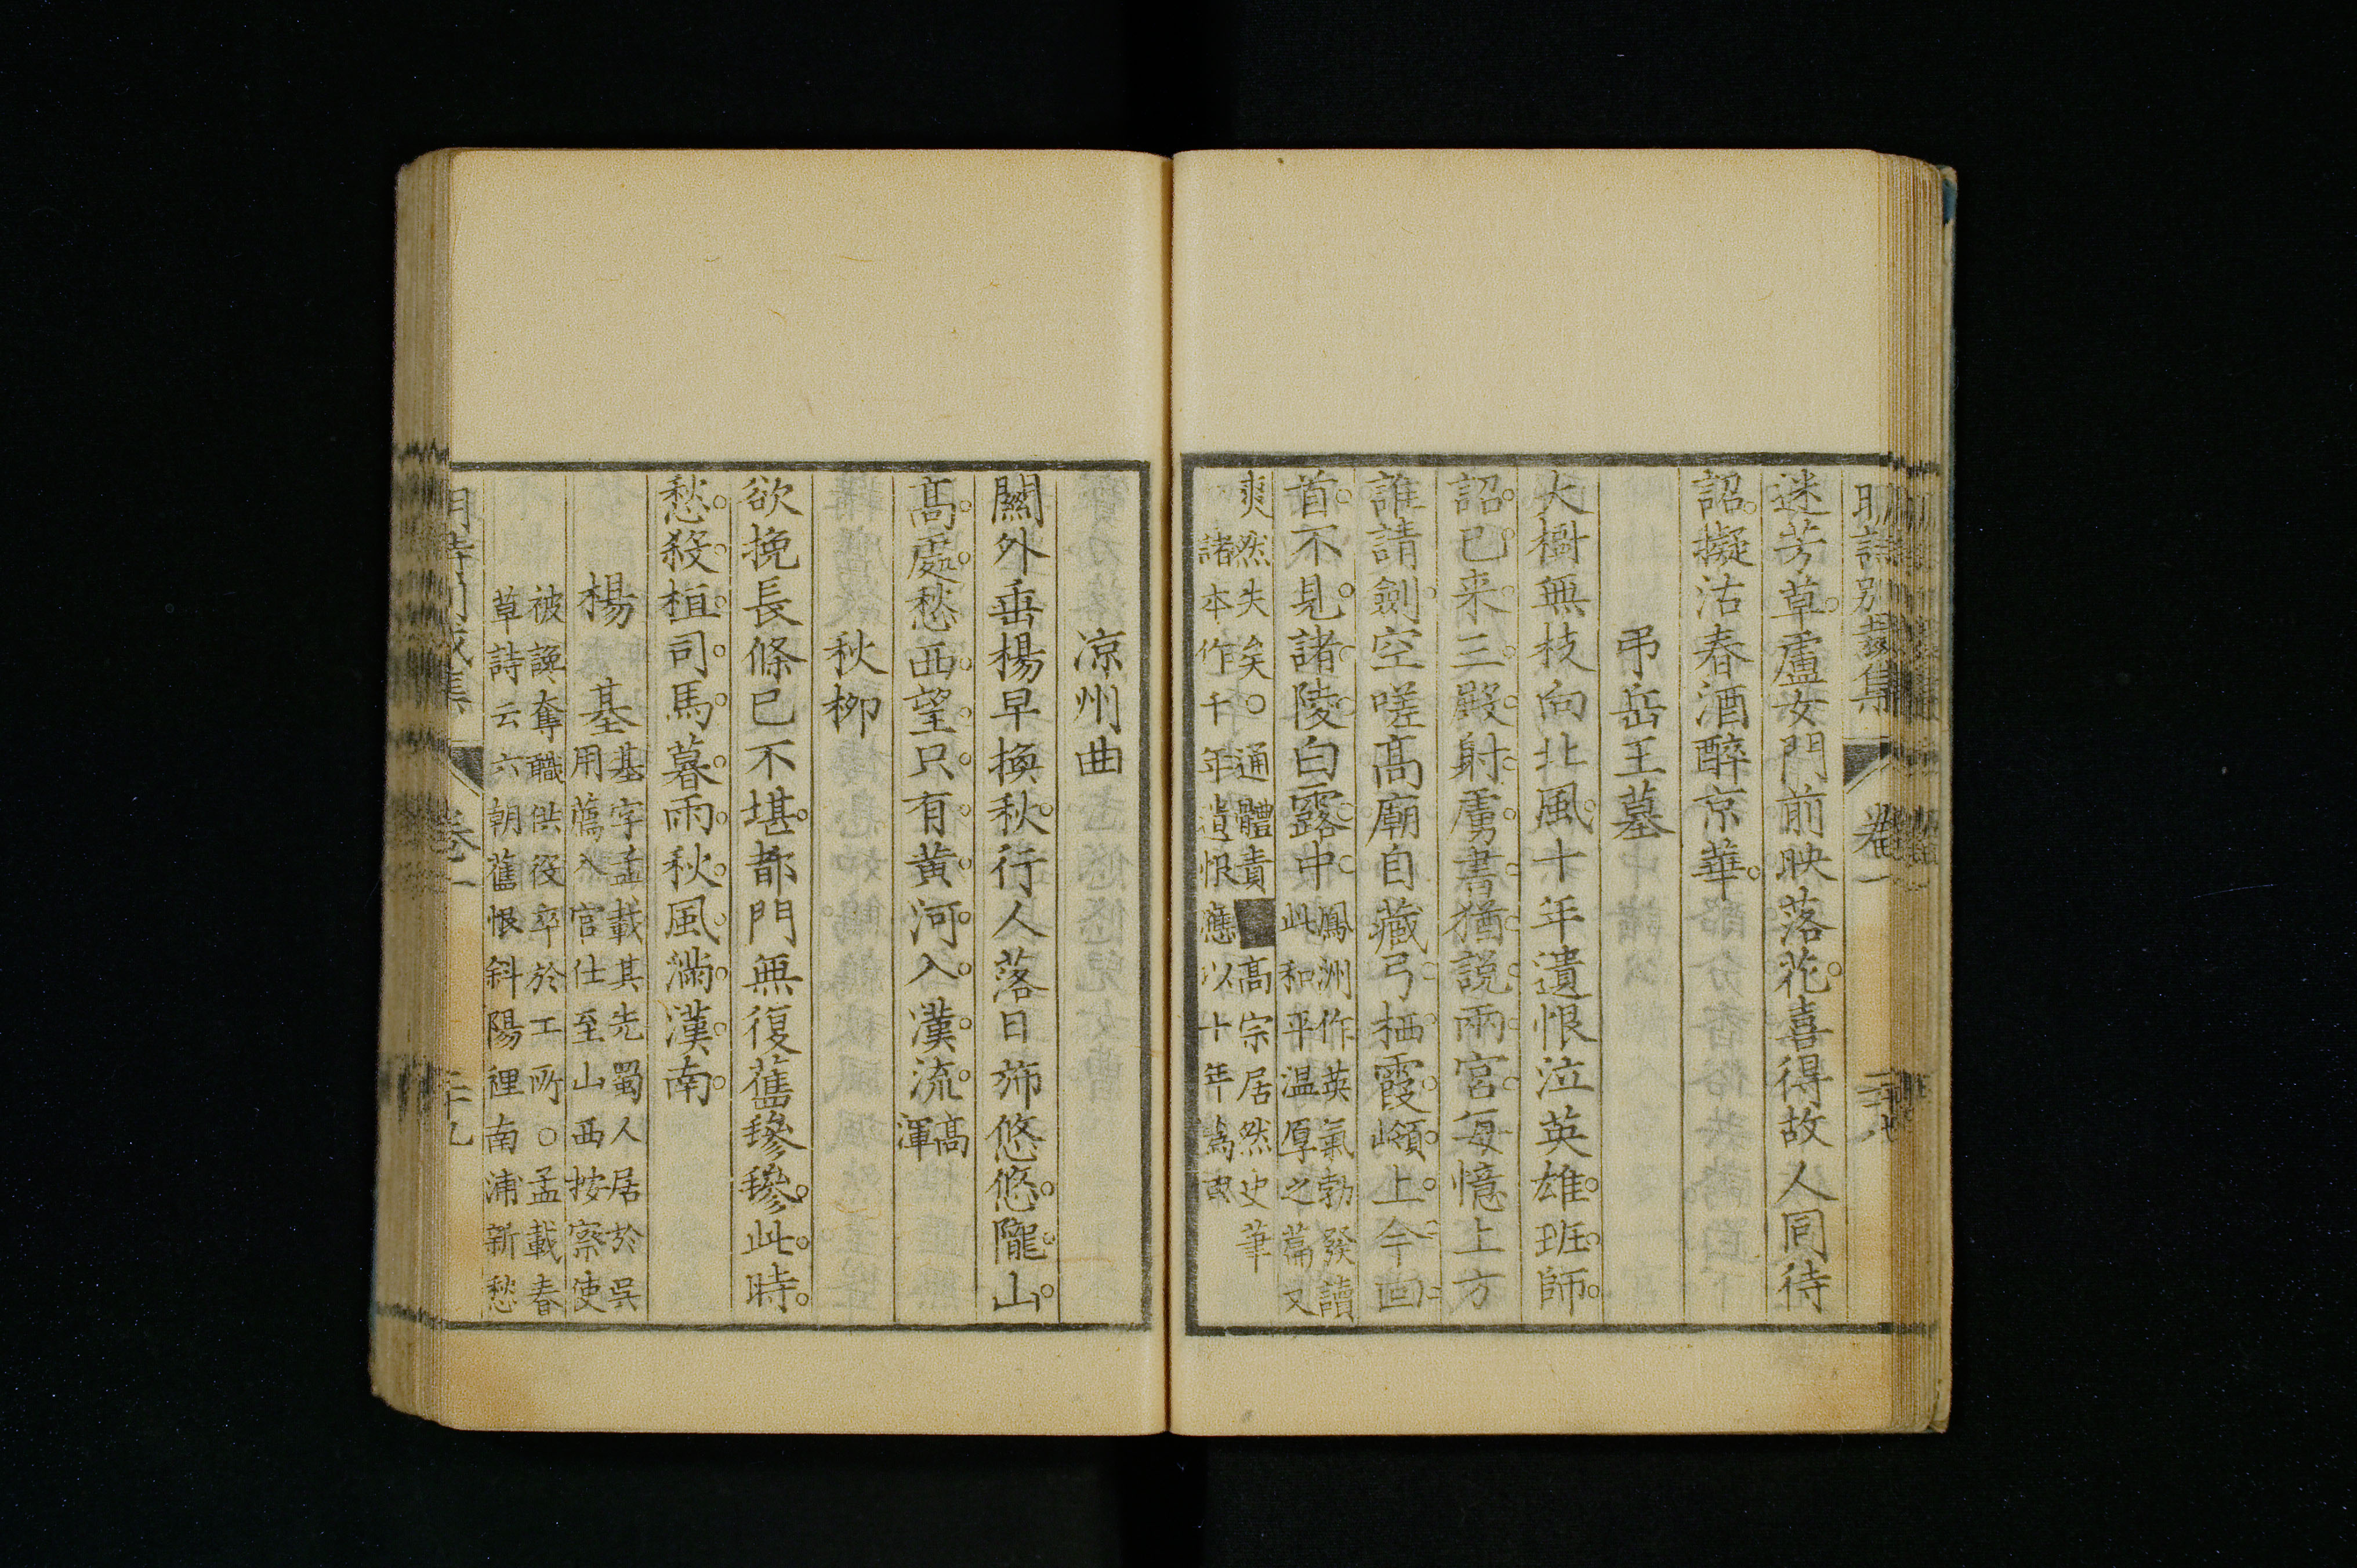 明詩別裁集 卷一
迷芳草。盧女門前映落花。喜得故人同待
詔。擬沽春酒醉京華。
弔岳王墓
大樹無枝向北風。十年遺恨泣英雄。班師。
詔。已。来。三。殿。射。虜。書。猶。説。兩。宮。每憶上方
誰請劍。空嗟髙廟自藏弓。栖。霞。嶺。上。今。囘。
首。不。見。諸。陵。白。露。中。
鳳洲作英氣勃發讀
此和平温厚之篇又
爽然失矣○通體責■髙宗居然史筆
諸本作千年遺恨應以十年為東
凉州曲
關外垂楊早換秋。行人落日斾悠悠。隴。山。
髙。處。愁。西。望。只。有。黄。河。入。漢。流。
髙
渾
秋栁
欲挽長條已不堪。都門無復舊毿毿。此。時。
愁。殺。桓。司。馬。暮。雨。秋。風。滿。漢。南。
楊基
基字孟載其先蜀人居於吳
用薦入官仕至山西按察使
被讒奪職供役卒於工所○孟載春
草詩云六朝舊恨斜陽裡南浦新愁
卷一